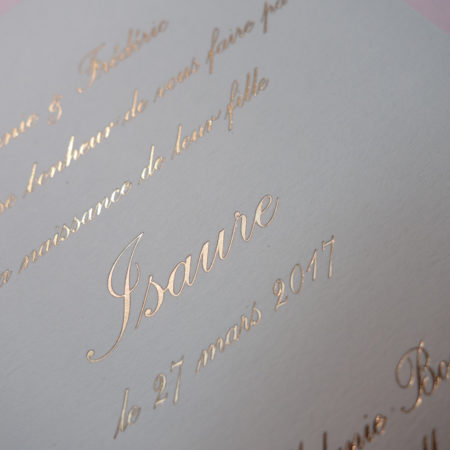 & Frédéric
bonheur de vous faire pa
naissance de leur fille
Isaure
le 27 mars 2017